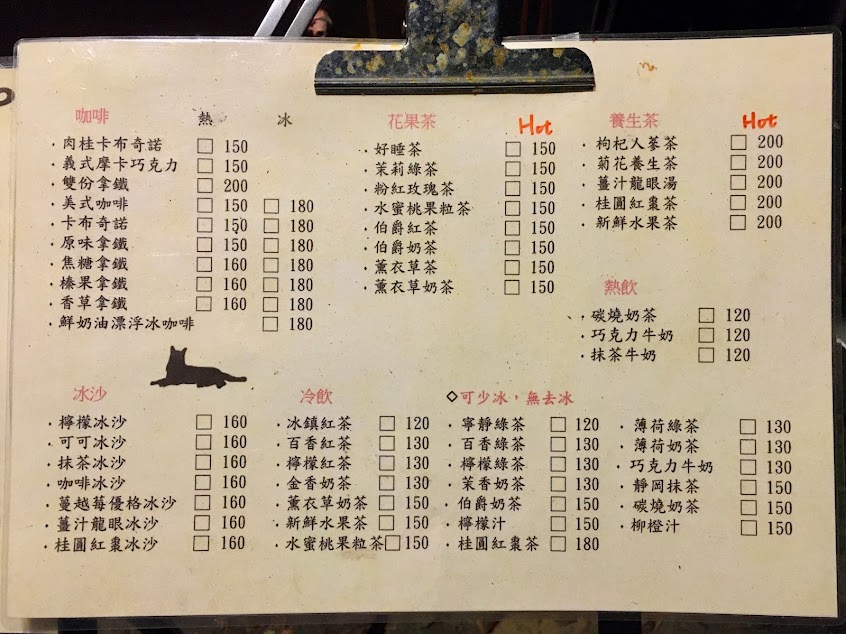 咖啡 熱 冰
·肉桂卡布奇諾 □ 150
·義式摩卡巧克力 □ 150
·雙份拿鐵 □ 200
·美式咖啡 □ 150 □ 180
·卡布奇諾 □ 150 □ 180
·原味拿鐵 □ 150 □ 180
·焦糖拿鐵 □ 160 □ 180
·榛果拿鐵 □ 160 □ 180
·香草拿鐵 □ 160 □ 180
·鮮奶油漂浮冰咖啡 □ 180
花果茶 Hot
·好睡茶 □ 150
·茉莉綠茶 □ 150
·粉紅玫瑰茶 □ 150
·水蜜桃果粒茶 □ 150
·伯爵紅茶 □ 150
·伯爵奶茶 □ 150
·薰衣草茶 □ 150
·薰衣草奶茶 □ 150
養生茶 Hot
·枸杞人蔘茶 □ 200
·菊花養生茶 □ 200
·薑汁龍眼湯 □ 200
·桂圓紅棗茶 □ 200
·新鮮水果茶 □ 200
熱飲
·碳燒奶茶 □ 120
·巧克力牛奶 □ 120
·抹茶牛奶 □ 120
冰沙
·檸檬冰沙 □ 160
·可可冰沙 □ 160
·抹茶冰沙 □ 160
·咖啡冰沙 □ 160
·蔓越莓優格冰沙 □ 160
·薑汁龍眼冰沙 □ 160
·桂圓紅棗冰沙 □ 160
冷飲 ◇可少冰，無去冰
·冰鎮紅茶 □ 120
·百香紅茶 □ 130
·檸檬紅茶 □ 130
·金香奶茶 □ 130
·薰衣草奶茶 □ 150
·新鮮水果茶 □ 150
·水蜜桃果粒茶 □ 150
·寧靜綠茶 □ 120
·百香綠茶 □ 130
·檸檬綠茶 □ 130
·茉香奶茶 □ 130
·伯爵奶茶 □ 150
·檸檬汁 □ 150
·桂圓紅棗茶 □ 180
·薄荷綠茶 □ 130
·薄荷奶茶 □ 130
·巧克力牛奶 □ 130
·靜岡抹茶 □ 150
·碳燒奶茶 □ 150
·柳橙汁 □ 150